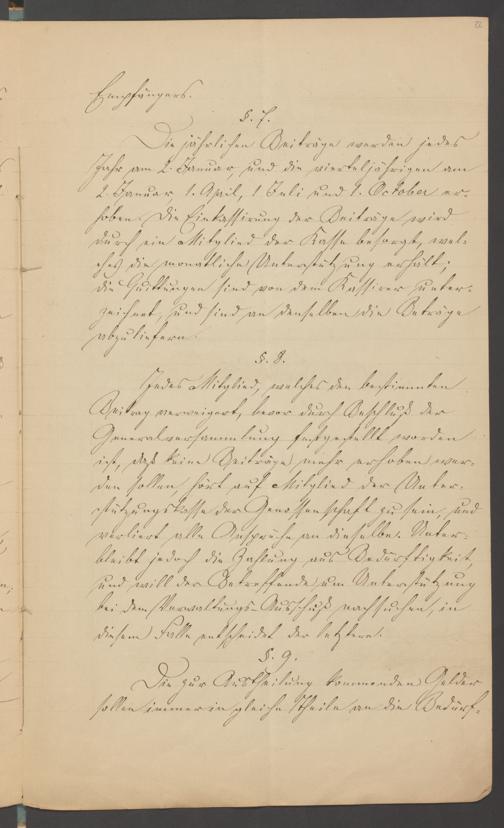 Empfängers.
§. 7.
Die jährlichen Beiträge werden jedes
Jahr am 2. Januar, und die vierteljährigen am
2. Januar 1. April, 1 Juli und 1. October er-
hoben. Die Einkassirung der Beiträge wird
durch ein Mitglied der Kasse besorgt, wel-
ches die monatliche Unterstützung erhält;
die Quittungen sind von dem Kassirer unter-
zeichnet, und sind an denselben die Beträge
abzuliefern.
§. 8.
Jedes Mitglied, welches den bestimmten
Beitrag verweigert, bevor durch Beschluß der
Generalversammlung festgestellt worden
ist, daß keine Beiträge mehr erhoben wer-
den sollen, hört auf Mitglied der Unter-
stützungskasse der Genossenschaft zu sein, und
verliert alle Ansprüche an dieselbe. Unter-
bleibt jedoch die Zahlung aus Bedürftigkeit,
und will der Betreffende um Unterstützung
bei dem Verwaltungs-Ausschuß nachsuchen, in
diesem Falle entscheidet der letztere.
§. 9.
Die zur Austheilung kommenden Gelder
sollen immer in gleiche Theile an die Bedürf-